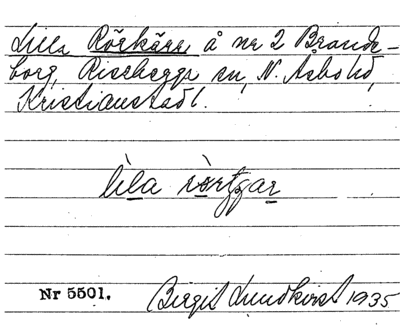 Lilla Rörkärr å nr 2 Brande-
borg, Riseberga sn, N. Åsbo hd,
Kristianstads l.
lìla rö̀rtɟar
Nr 5501.
Birgit Lundkvist 1935